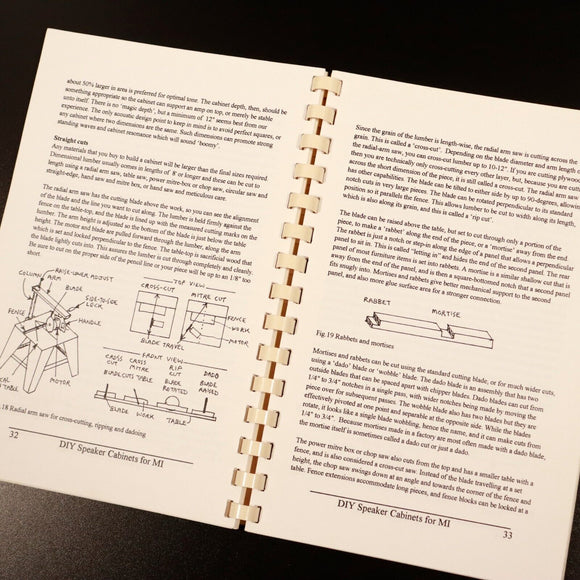 about 50% larger in area is preferred for optimal tone. The cabinet depth, then, should be
something appropriate so the cabinet can support an amp on top, or merely be stable
unto itself. There is no 'magic depth', but a minimum of 12" seems best from our
experience. The only acoustic design point to keep in mind is to avoid perfect squares, or
any cabinet where two dimensions are the same. Such dimensions can promote strong
standing waves and cabinet resonance which will sound 'boomy'.
Straight cuts
Any materials that you buy to build a cabinet will be larger than the final sizes required.
Dimensional lumber usually comes in lengths of 8' or longer and these can be cut to
length using a radial arm saw, table saw, power mitre-box or chop saw, circular saw and
straight-edge, hand saw and mitre box, or hand saw and meticulous care.
The radial arm saw has the cutting blade above the work, so you can see the alignment
of the blade and the line you want to cut along. The lumber is held firmly against the
fence on the table-top, and the blade is lined up with the measured cutting marks on the
lumber. The arm height is adjusted so the bottom of the blade is just below the table
height. The motor and blade are pulled forward through the lumber, along the arm
which is set and locked perpendicular to the fence. The table-top is sacrificial wood that
the blade lightly cuts into. This assures the lumber is cut through completely and cleanly.
Be sure to cut on the proper side of the pencil line or your piece will be up to an 1/8" too
short.
COLUMN
ARM
RAISE-LOWER ADJUST
BLADE
SIDE-TO-SIDE
LOCK
FENCE
HANDLE
MOTOR
TABLE
TOP VIEW
CROSS-CUT
MITRE CUT
FENCE
WORK
MOTOR
BLADE TRAVEL
FRONT VIEW
CROSS CUT
CROSS MITRE
RIP CUT
DADO
BLADE CUTS TABLE
BLADE ROTATED
BLADE RAISED
BLADE WORK TABLE
18 Radial arm saw for cross-cutting, ripping and dadoing
32
DIY Speaker Cabinets for MI
Since the grain of the lumber is length-wise, the radial arm saw is cutting across the
grain. This is called a 'cross-cut'. Depending on the blade diameter and arm length of
the radial arm saw, you can cross-cut lumber up to 10-12". If you are cutting plywood,
then you are technically only cross-cutting every other layer, but, because you are cutting
across the short dimension of the piece, it is still called a cross-cut. The radial arm saw
has other capabilities. The blade can be tilted to either side by up to 90-degrees, allowing
notch cuts in very large pieces. The blade can be rotated perpendicular to its standard
position so it parallels the fence. This allows lumber to be cut to width along its length,
which is also along its grain, and this is called a 'rip cut'.
The blade can be raised above the table, but set to cut through only a portion of the
piece, to make a 'rabbet' along the end of the piece, or a 'mortise' away from the end.
The rabbet is just a notch or step-in along the edge of a panel that allows a perpendicular
panel to sit in. This is called "letting in" and hides the end of the second panel. The rear
panel of most furniture items is set into rabbets. A mortise is a similar shallow cut that is
away from the end of the panel, and is then a square-bottomed notch that a second panel
fits snugly into. Mortises and rabbets give better mechanical support to the second
panel, and also more glue surface area for a stronger connection.
RABBET
MORTISE
Fig.19 Rabbets and mortises
Mortises and rabbets can be cut using the standard cutting blade, or for much wider cuts,
using a 'dado' or 'wobble' blade. The dado blade is an assembly that has two
outside blades that can be spaced apart with chipper blades. Dado blades can cut from
1/4" to 3/4" notches in a single pass, with wider notches being made by moving the
piece over for subsequent passes. The wobble blade also has two blades but they are
effectively pivoted at one point and separate at the opposite side. While the blades
rotate, it looks like a single blade wobbling, hence the name, and it can make cuts from
1/4" to 3/4". Because mortises made in a factory are most often made with a dado blade,
the mortise itself is sometimes called a dado cut or just a dado.
The power mitre box or chop saw also cuts from the top and has a smaller table with a
fence, and is also considered a cross-cut saw. Instead of the blade travelling at a set
height, the chop saw swings down at an angle and towards the corner of the fence and
table. Fence extensions accommodate long pieces, and fence blocks can be locked at a
DIY Speaker Cabinets for MI
33